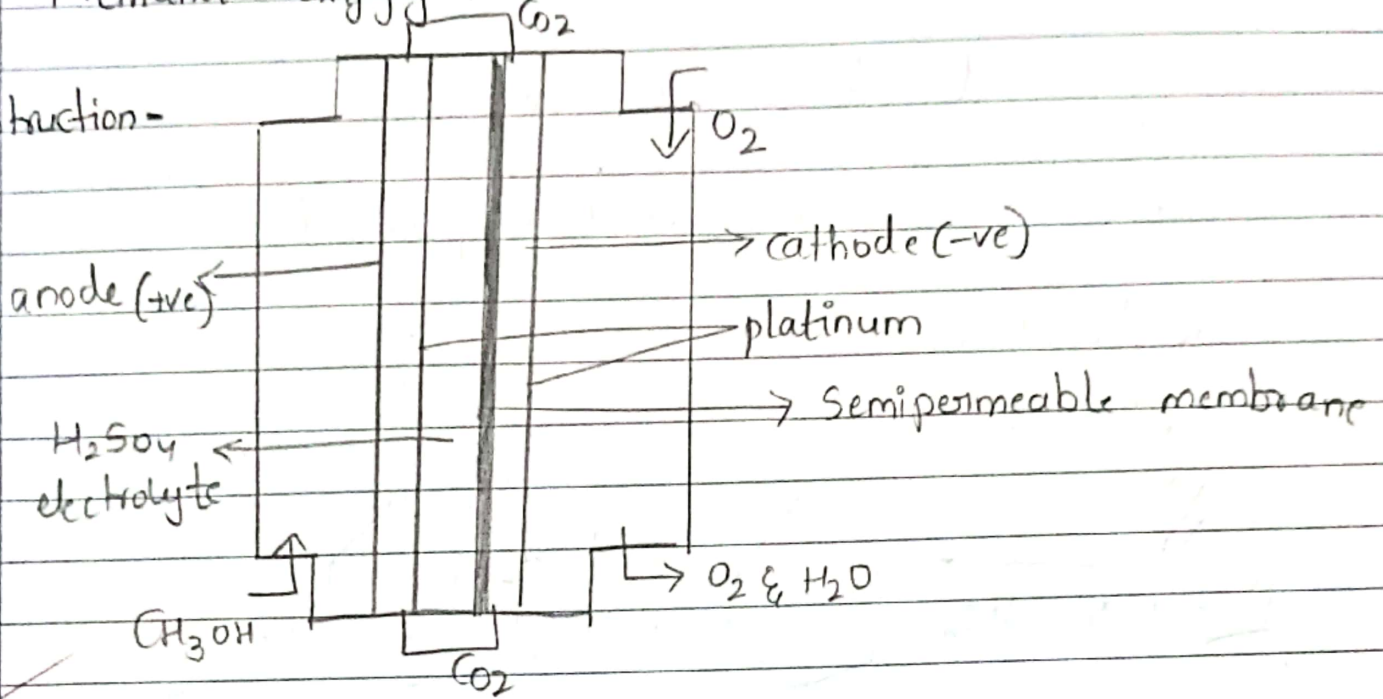 CO2
truction-
O2
cathode (-ve)
anode (+ve)
platinum
Semipermeable membrane
H2SO4
electrolyte
O2 & H2O
CH3OH
CO2